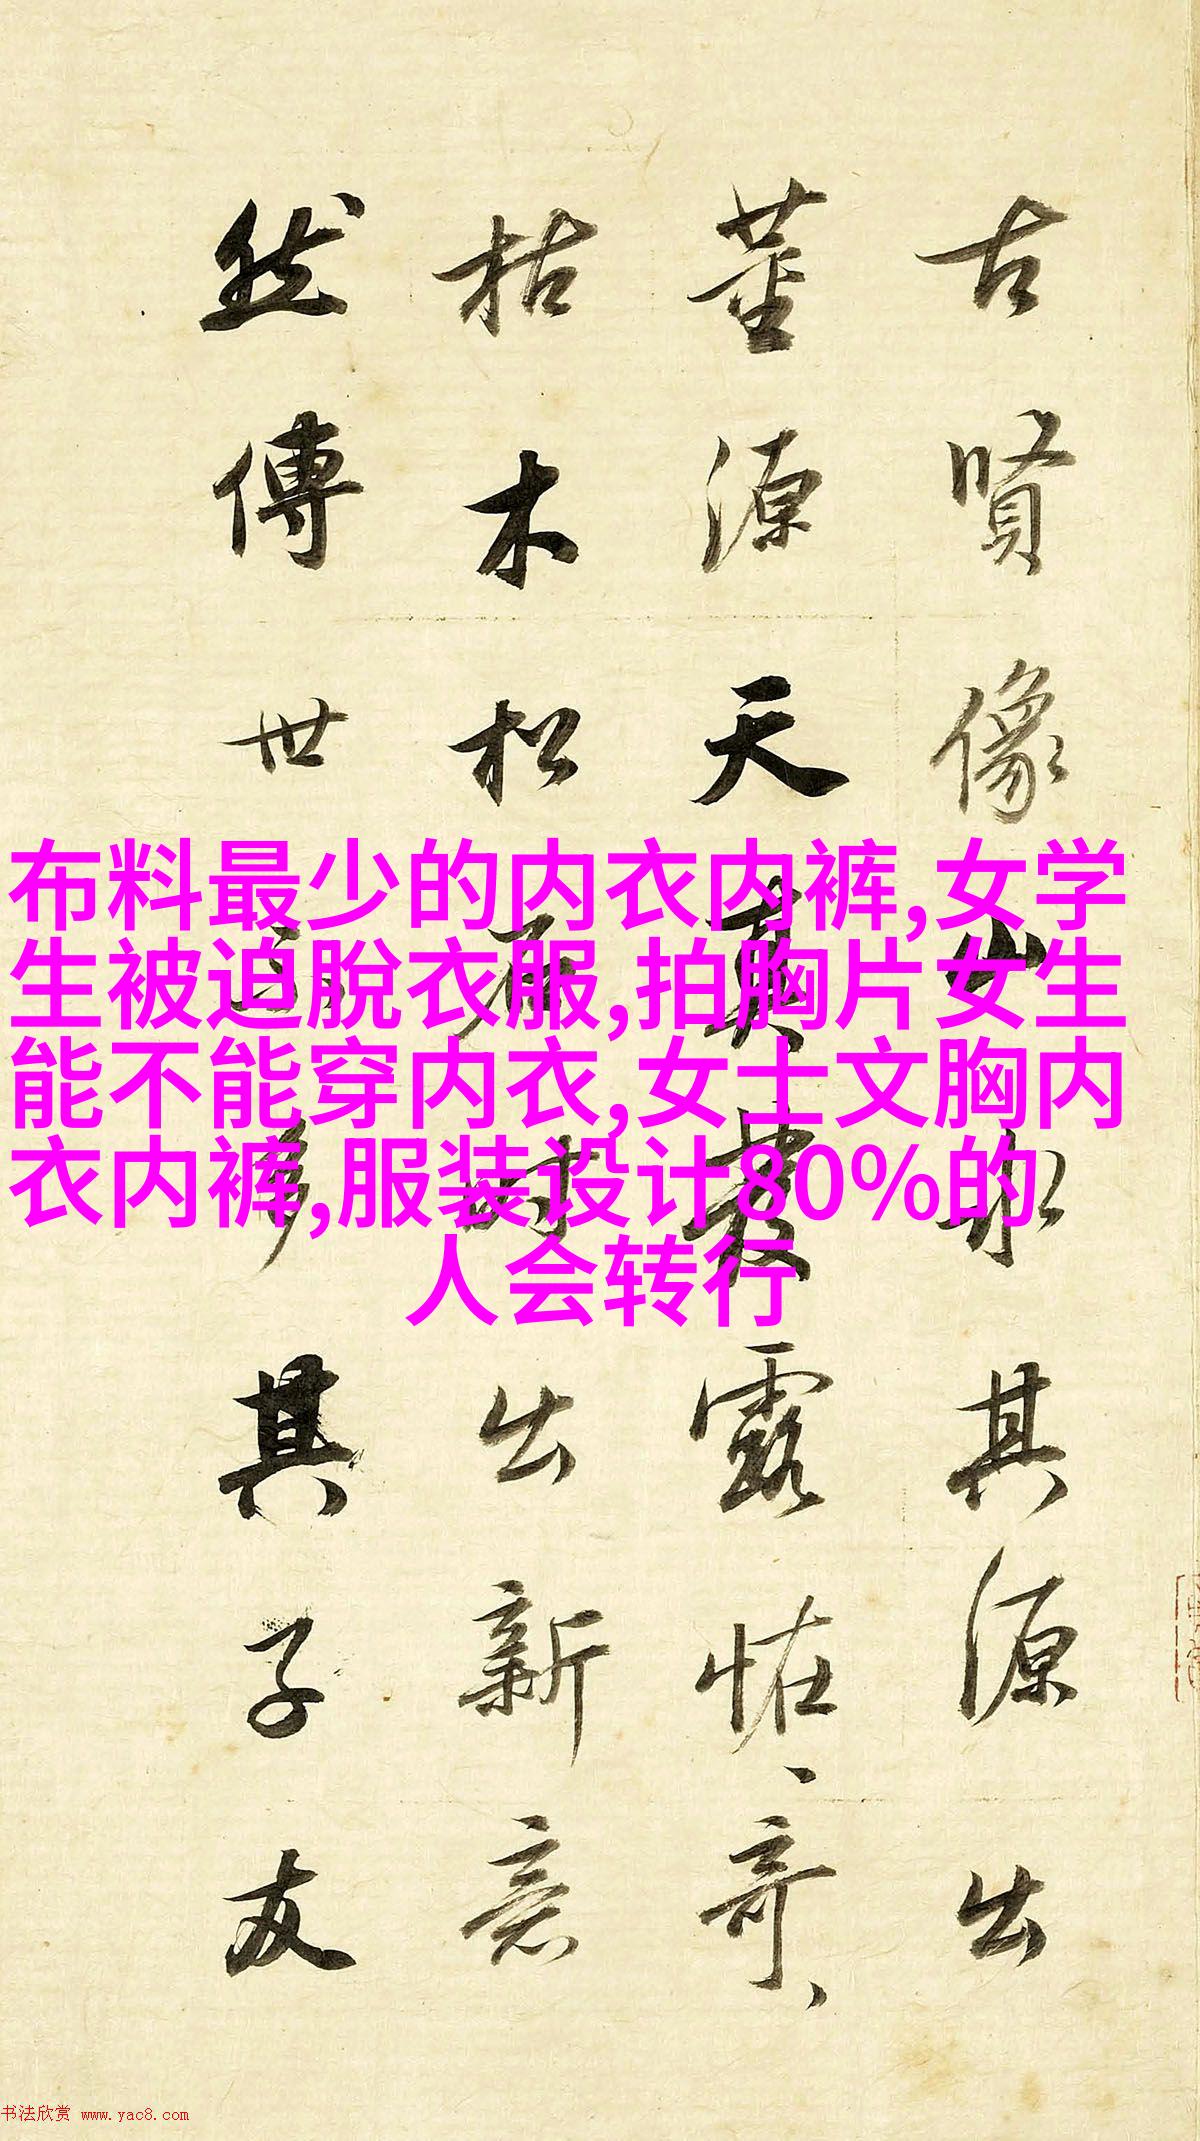 古賢像山水其源出
董源天真發露恠、奇、
枯木松石時出新意
然傳世多其子友
布料最少的内衣内裤,女学
生被迫脫衣服,拍胸片女生
能不能穿内衣,女士文胸内
衣内裤,服装设计80%的
人会转行
书法欣赏 www.yac8.com